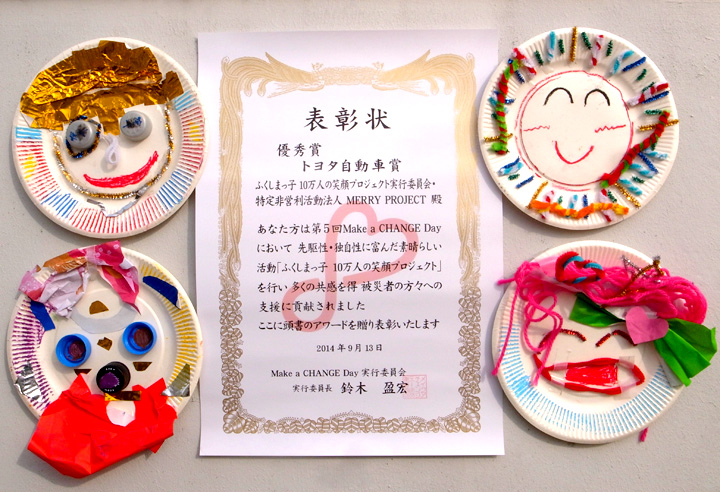 表彰状
優秀賞
トヨタ自動車賞
ふくしまっ子 10万人の笑顔プロジェクト実行委員会・
特定非営利活動法人 MERRY PROJECT 殿
あなた方は第5回Make a CHANGE Day
において 先駆性・独自性に富んだ素晴らしい
活動「ふくしまっ子 10万人の笑顔プロジェクト」
を行い 多くの共感を得 被災者の方々への
支援に貢献されました
ここに頭書のアワードを贈り表彰いたします
2014年9月13日
Make a CHANGE Day 実行委員会
実行委員長 鈴木 盈宏